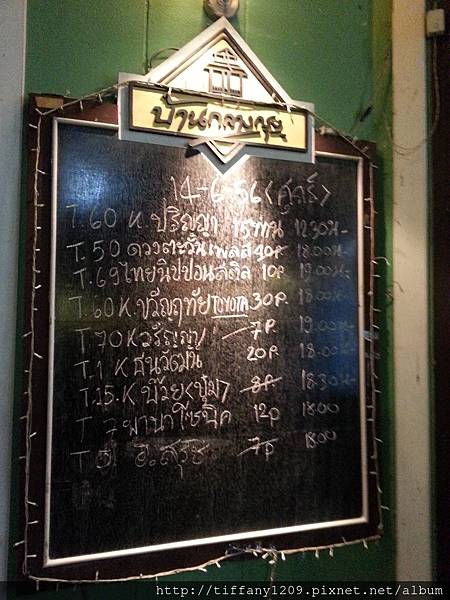 บ้านกลางกรุง
14-6-56 (ศุกร์)
T.60 K ปริญญา 15 ท่าน 12.30น-
T.50 ดวงตะวันเพลส 40P 18.00น-
T.69 ไทยนิปปอนสตีล 10P 19.00น-
T.60 K. ขวัญฤทัย TOYOTA 30P. 18.00น-
T.70 K วรัญญา 7P 19.00น-
T.1 K ธนวัฒน์ 20P 18.00น-
T.25. K ป๊วย (ปุ้ม) 8P 18.30น-
T 7 พานาโซนิค 12P 18.00
T อ. สรุช 7P 18.00
http://tiffany1209.pixnet.net/album